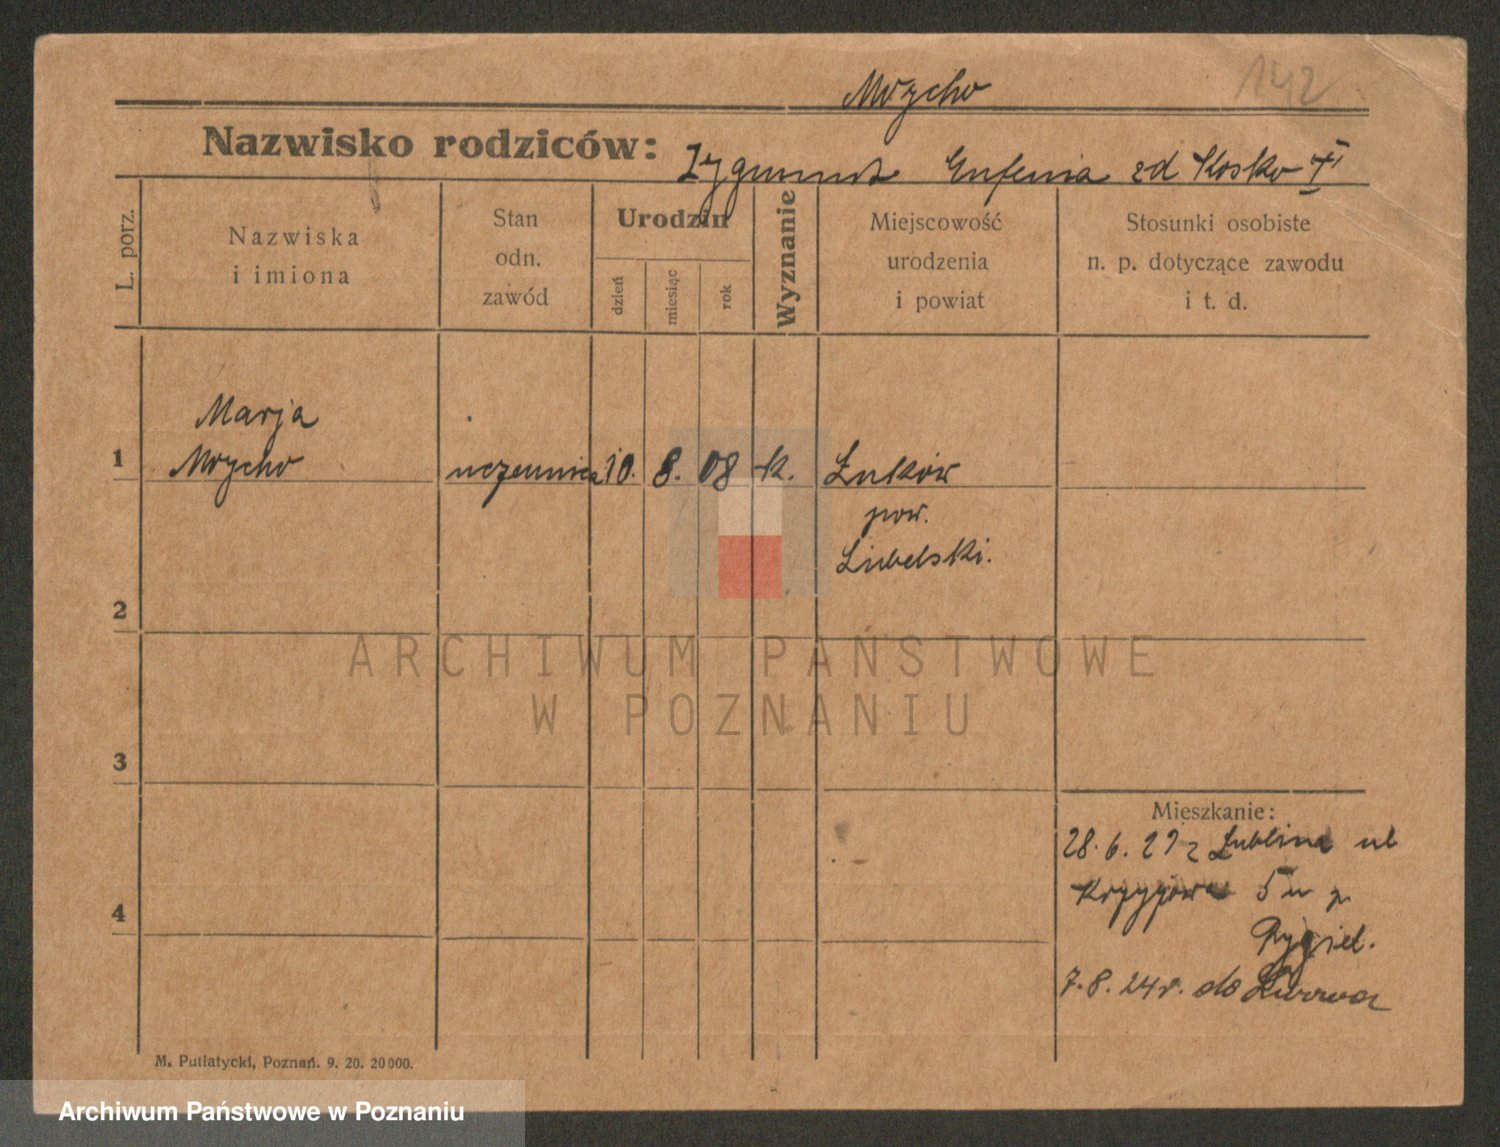 142
Mrycho
Nazwisko rodziców: Zygmunt Eufemia zd Kosko VI
L. porz.
Nazwiska
i imiona
Stan
odn.
zawód
Urodzin
dzień
miesiąc
rok
Wyznanie
Miejscowość
urodzenia
i powiat
Stosunki osobiste
n. p. dotyczące zawodu
i t. d.
Marja
1 Mrycho uczennica 10. 8. 08 k. Łuków
pow.
Lubelski.
2
ARCHIWUM PAŃSTWOWE
W POZNANIU
3
Mieszkanie:
28. 6. 2 z Lublina ul
4 5 u p.
Rygiel.
7. 8. 24 r. do Lwowa
M. Putiatycki, Poznań. 9. 20. 20000.
Archiwum Państwowe w Poznaniu